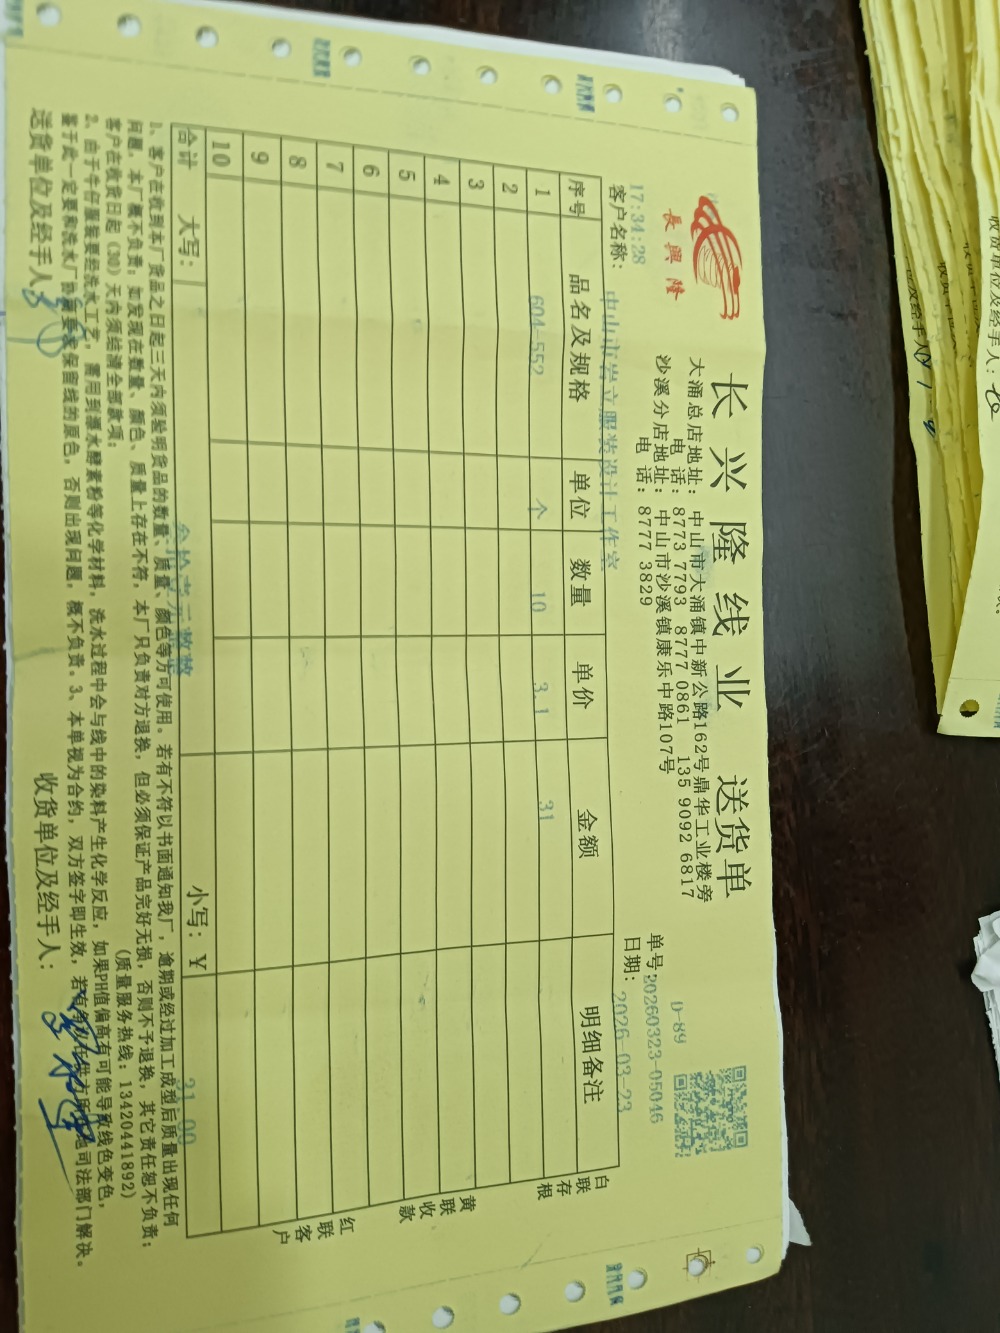 長興隆
长兴隆线业 送货单
大涌总店地址：中山市大涌镇中新公路162号鼎华工业楼旁
电 话：8773 7793 8777 0861 135 9092 6817
沙溪分店地址：中山市沙溪镇康乐中路107号
电 话：8777 3829
D-89
单号：20260323-05046
17:34:28
日期：2026-03-23
客户名称：中山市岩立服装设计工作室
序号 品名及规格 单位 数量 单价 金额 明细备注
1 604-552 个 10 3.1 31
2
3
4
5
6
7
8
9
10
合计 大写：叁拾壹元整 小写：￥31.00
白联存根
黄联收款
红联客户
1、客户在收到本厂货品之日起三天内须验明货品的数量、质量、颜色等方可使用。若有不符以书面通知我厂，逾期或经过加工成型后质量出现任何
问题，本厂概不负责；如发现在数量、颜色、质量上存在不符，本厂只负责对方退换，但必须保证产品完好无损，否则不予退换，其它责任恕不负责；
客户在收货日起（30）天内须结清全部款项； （质量服务热线：13420441892）
2、由于牛仔服装要经洗水工艺，需用到漂水酵素粉等化学材料，洗水过程中会与线中的染料产生化学反应，如果PH值偏高有可能导致线色变色，
鉴于此一定要和洗水厂协调要求保留线的原色，否则出现问题，概不负责。3、本单视为合约，双方签字即生效，若有争议在供方所在地司法部门解决。
送货单位及经手人：
收货单位及经手人：
收货单位及经手人：